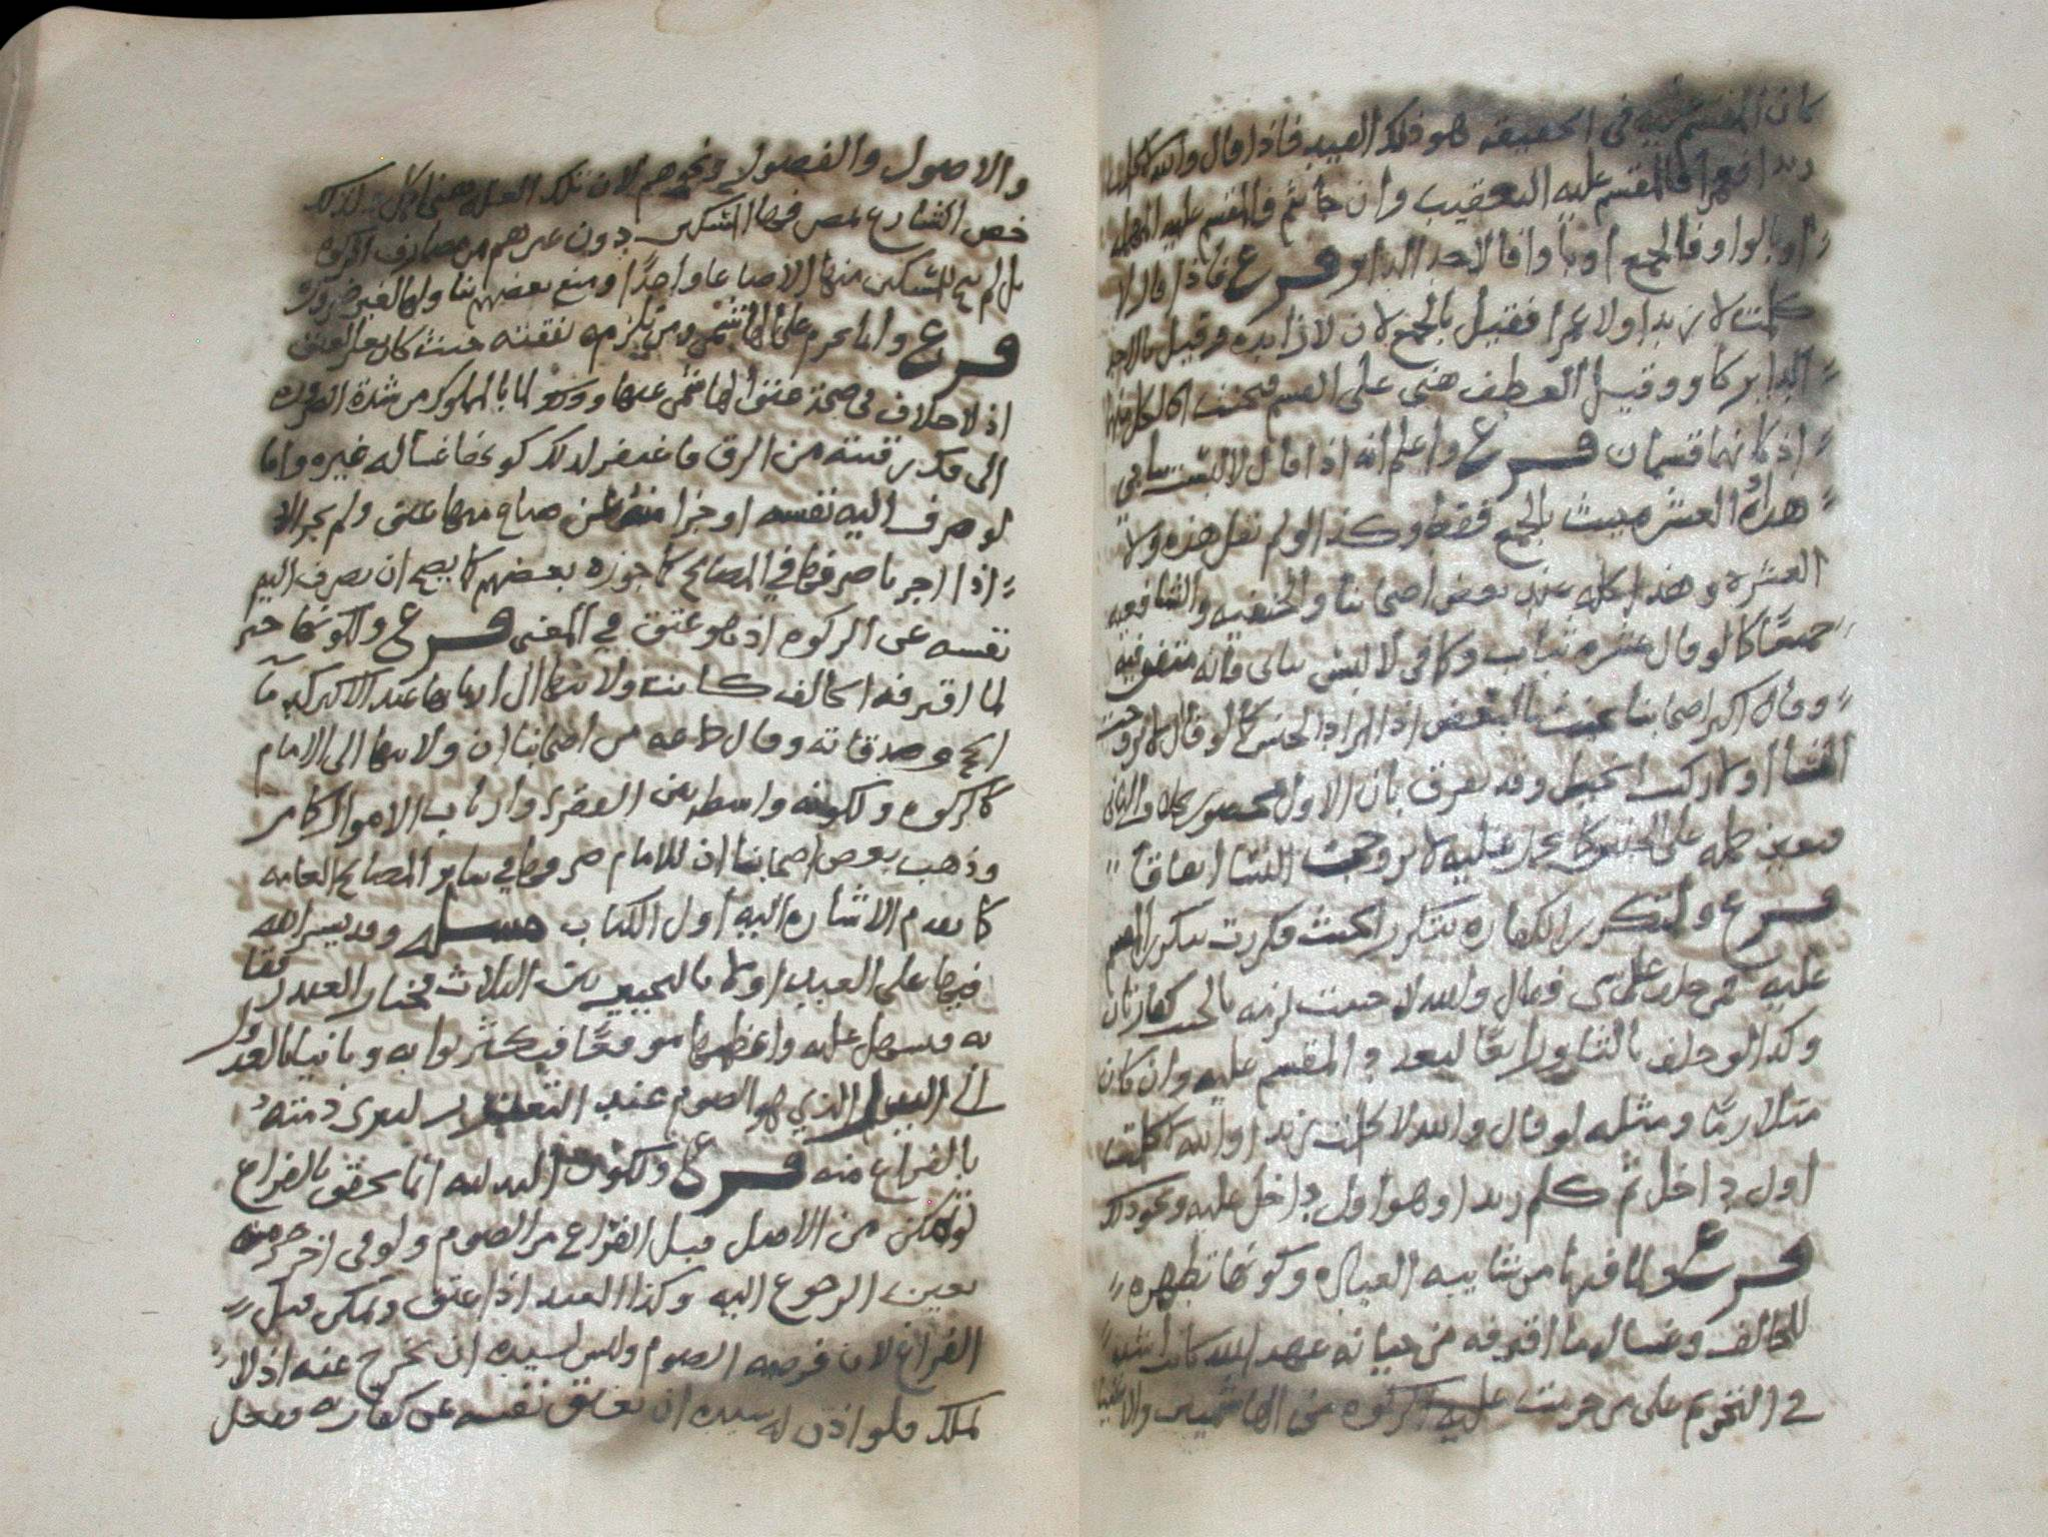 كان المقسم عليه في الحقيقه هو فلك العبيد فاذا قال والله لا كلمت
زيدا فعمرا فالمقسم عليه التعقيب وان جا بثم فالمقسم عليه المهله
او بالواو فالجمع او باو فالاحد الداير فرع فاذا قال لا
كلمت لا زيدا ولا عمرا فقيل بالجمع لان لا زايده وقيل بالاحد
الداير كاو وقيل العطف هنا على القسم فيحنث بكل منهما
اذ كانهما قسمان فرع واعلم انه اذا قال لا لبست ثيابي
هذه العشره حنث بالجميع فقط وكذا لو لم يقل هذه ولا
العشره وهذا كله عند بعض اصحابنا والحنفيه والشافعيه
جميعا كما لو قال عشره ثياب وكما في لا لبس ثيابي فانه متفق فيه
وقال اكثر اصحابنا يحنث بالبعض اذ المراد الجنس كما لو قال لا تزوجت
النسا او لا ركبت الخيل وقد يفرق بان الاول محصور والثاني
فتعين حمله على الجنس كما يحمل عليه لا تزوجت النسا اتفاقا
فرع وتتكرر الكفاره بتكرر الحنث وكررت بتكرر القسم
عليه فمن حلف على شي فقال والله لا حنثت لزمه بالحنث كفارتان
وكذا لو حلف بالثا ورابعا لتعدد المقسم عليه وان كان
متلازما ومثله لو قال والله لا كلمت زيدا والله لا كلمت
اول داخل ثم كلم زيدا وهو اول داخل عليه ونحو ذلك
فرع ولما فيها من شايبه العباده وكونها تطهره
للحالف وغساله ما اقترفه من خيانه عهد الله كانت اشبه
في التحريم على من حرمت عليه الزكوه من الهاشميين والاغنيا
والاصول والفصول ونحوهم لان تلك العله هنا كذلك
خص الشارع بمصرفها المساكين دون غيرهم من مصارف الزكوه
بل لم يبح للمسكين منها الا صاعا واحدا ومنع بعضهم تناولها لغير ضروره
فرع وانما يحرم على الهاشمي ومن تلزمه نفقته حيث كان بغير العتق
اذ لا خلاف في صحة عتق الهاشمي عنها وذلك لما بالمملوك من شدة الضروره
الى فك رقبته من الرق فاغتفر لذلك كونها غساله غيره واما
لو صرف اليه نفسه او جزا منه عن صاع منها عتق ولم يجز الا
اذا اجزنا صرفها في المصالح كما جوزه بعضهم كما يصح ان يصرف اليه
نفسه عن الزكوه اذ هو عتق في المعنى فرع ولكونها جبر
لما اقترفه الحالف كانت ولايتها الى اربابها عند الاكثر كدما
الحج وصدقاته وقال جماعه من اصحابنا ان ولايتها الى الامام
كالزكوه ولكونه واسطه بين الفقرا وارباب الاموال كما مر
وذهب بعض اصحابنا ان للامام صرفها في ساير المصالح العامه
كما تقدم الاشاره اليه اول الكتاب مسئله وقد يسر الله
فيها على العبيد اولا بالتخيير بين الثلاث فيختار العبد رفقا
به فيسهل عليه واعظمها موقعا فيكثر ثوابه وثانيا بالعدول
الى البدل الذي هو الصوم عند التعذر ليبرى ذمته
بالفراغ منه فرع ولكون البدليه انما تحقق بالفراغ
لو تمكن من الاصل قبل الفراغ من الصوم ولو في اخر جز منه
تعين الرجوع اليه وكذا العبد اذا عتق وتمكن قبل
الفراغ لان فرضه الصوم وليس لسيده ان يخرج عنه اذ لا
تملك فلو اذن له سيده ان يعتق نفسه عن كفارته ففعل